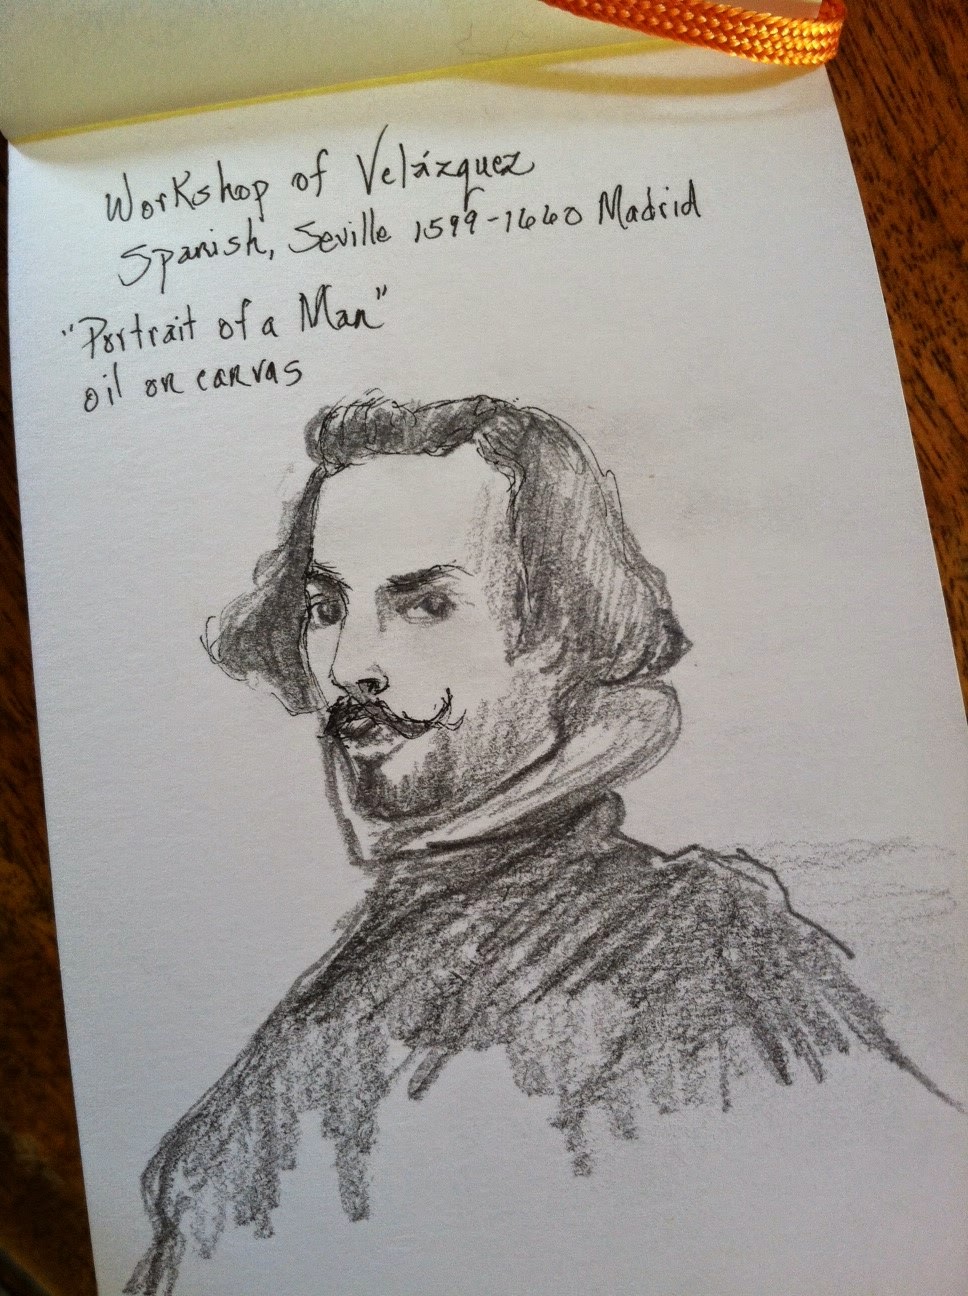 Workshop of Velázquez
Spanish, Seville 1599-1660 Madrid
"Portrait of a Man"
oil on canvas